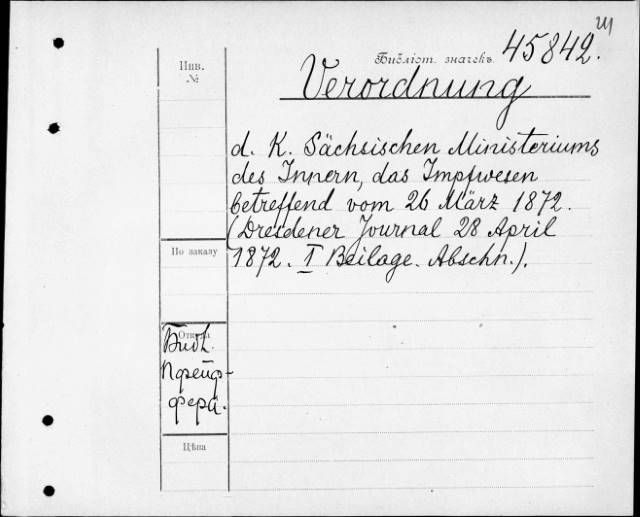 Инв.
№
Библіот. значекъ 45842.
Verordnung
d. K. Sächsischen Ministeriums
des Innern, das Impfwesen
betreffend vom 26 März 1872.
(Dresdener Journal 28 April
1872. I Beilage. Abschn.).
По заказу
Откуда
Библ.
Пфейф-
фера.
Цѣна